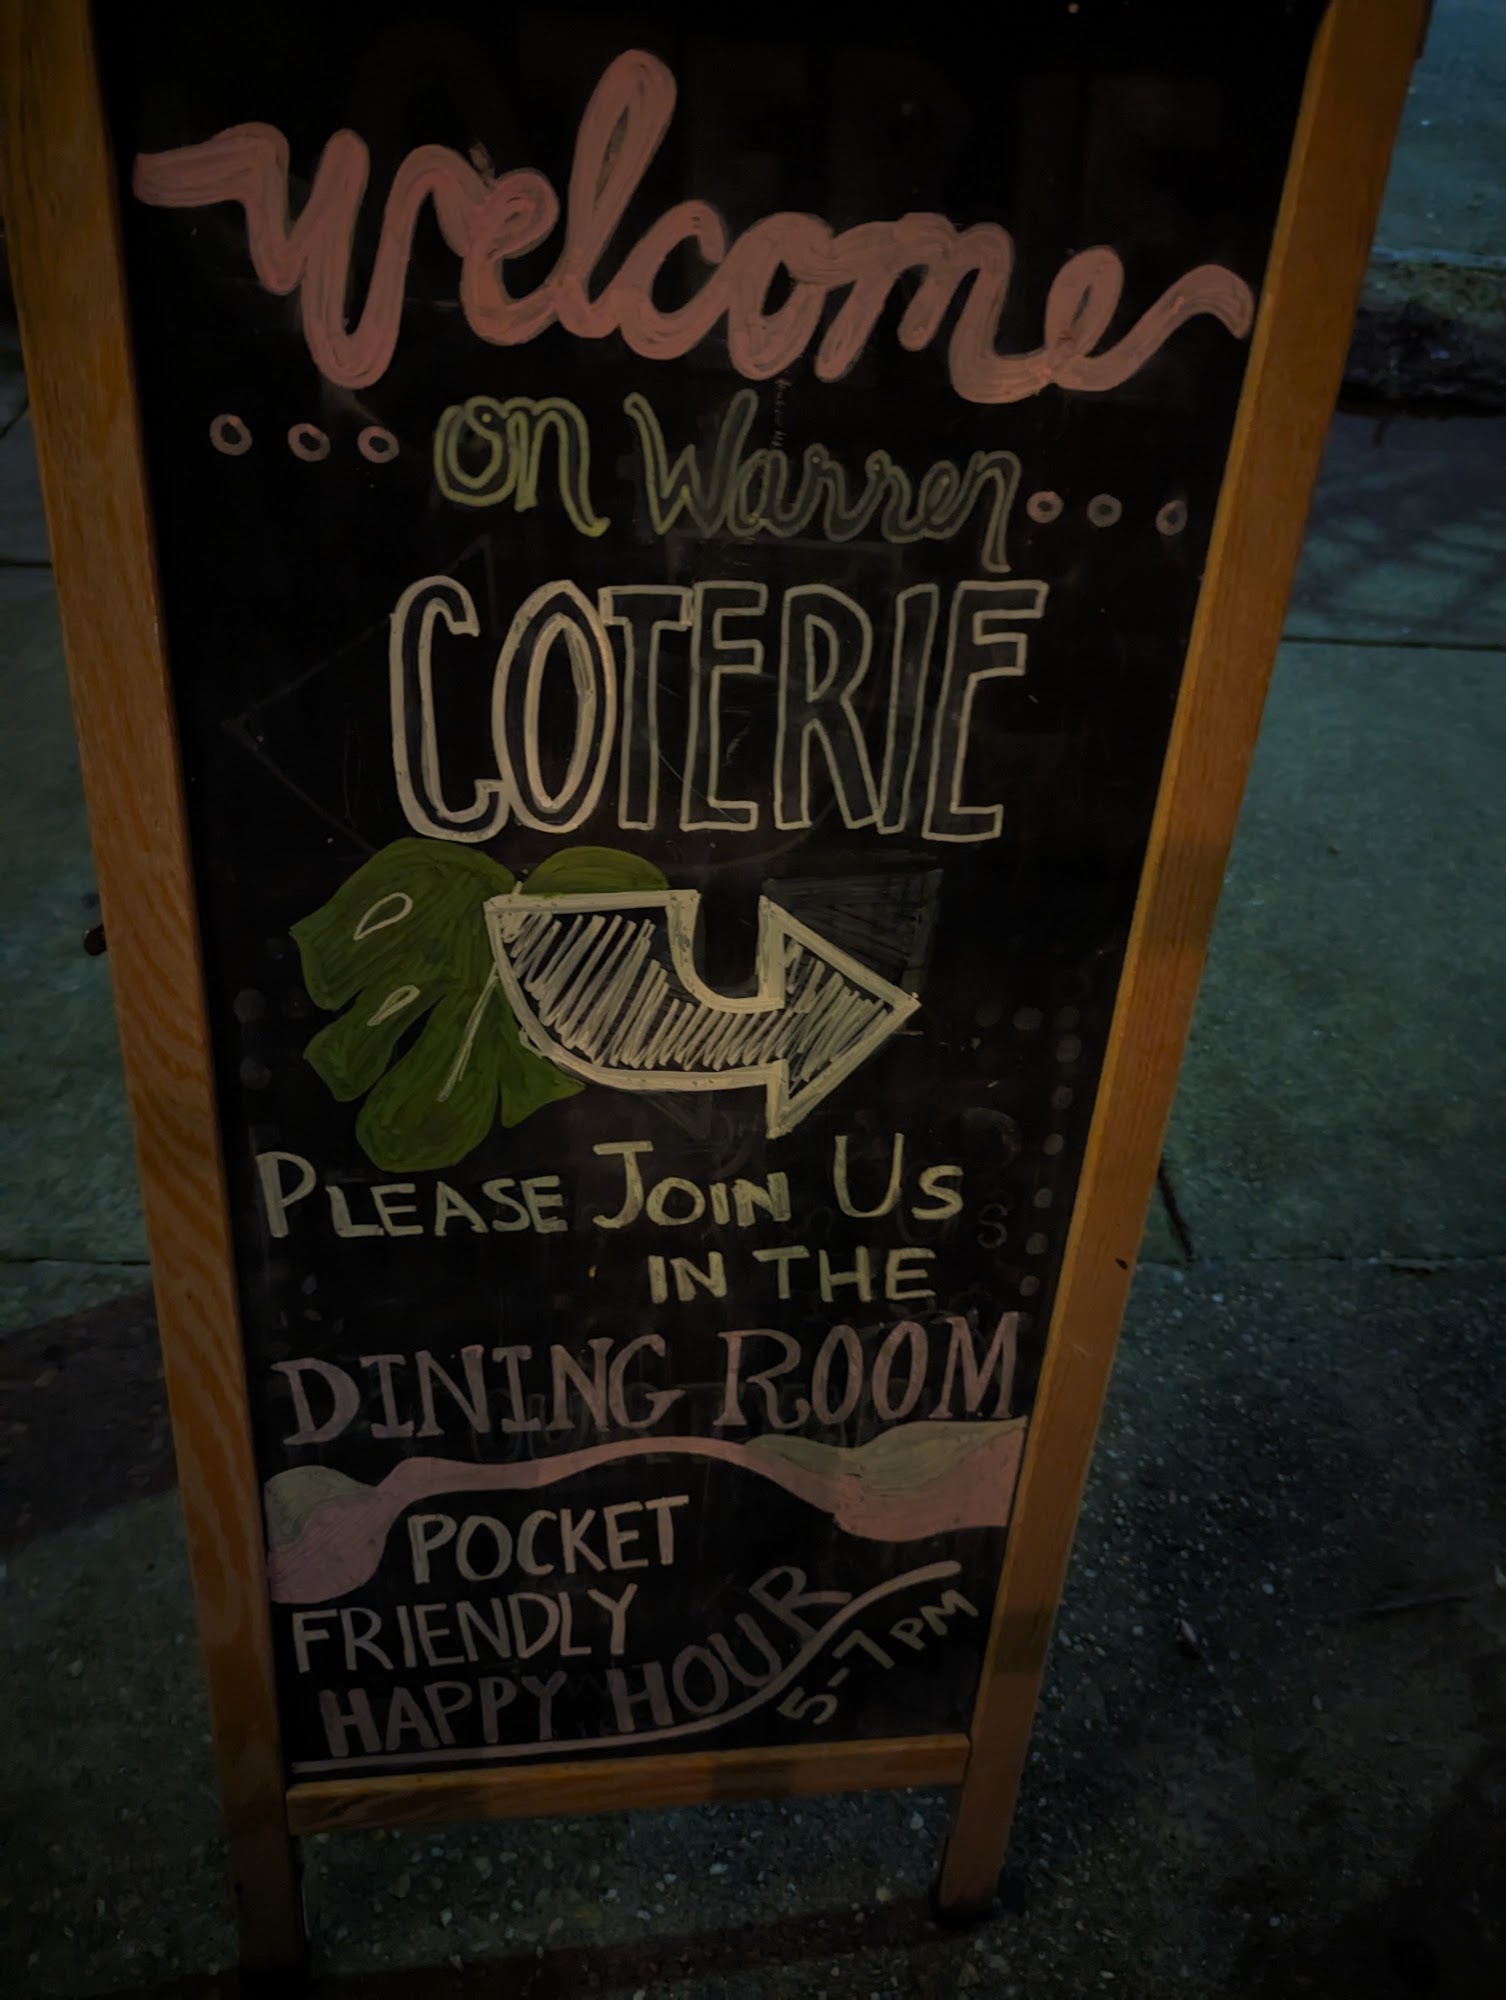 Welcome
on Warren
COTERIE
PLEASE JOIN US
IN THE
DINING ROOM
POCKET
FRIENDLY
HAPPY HOUR
5-7 PM